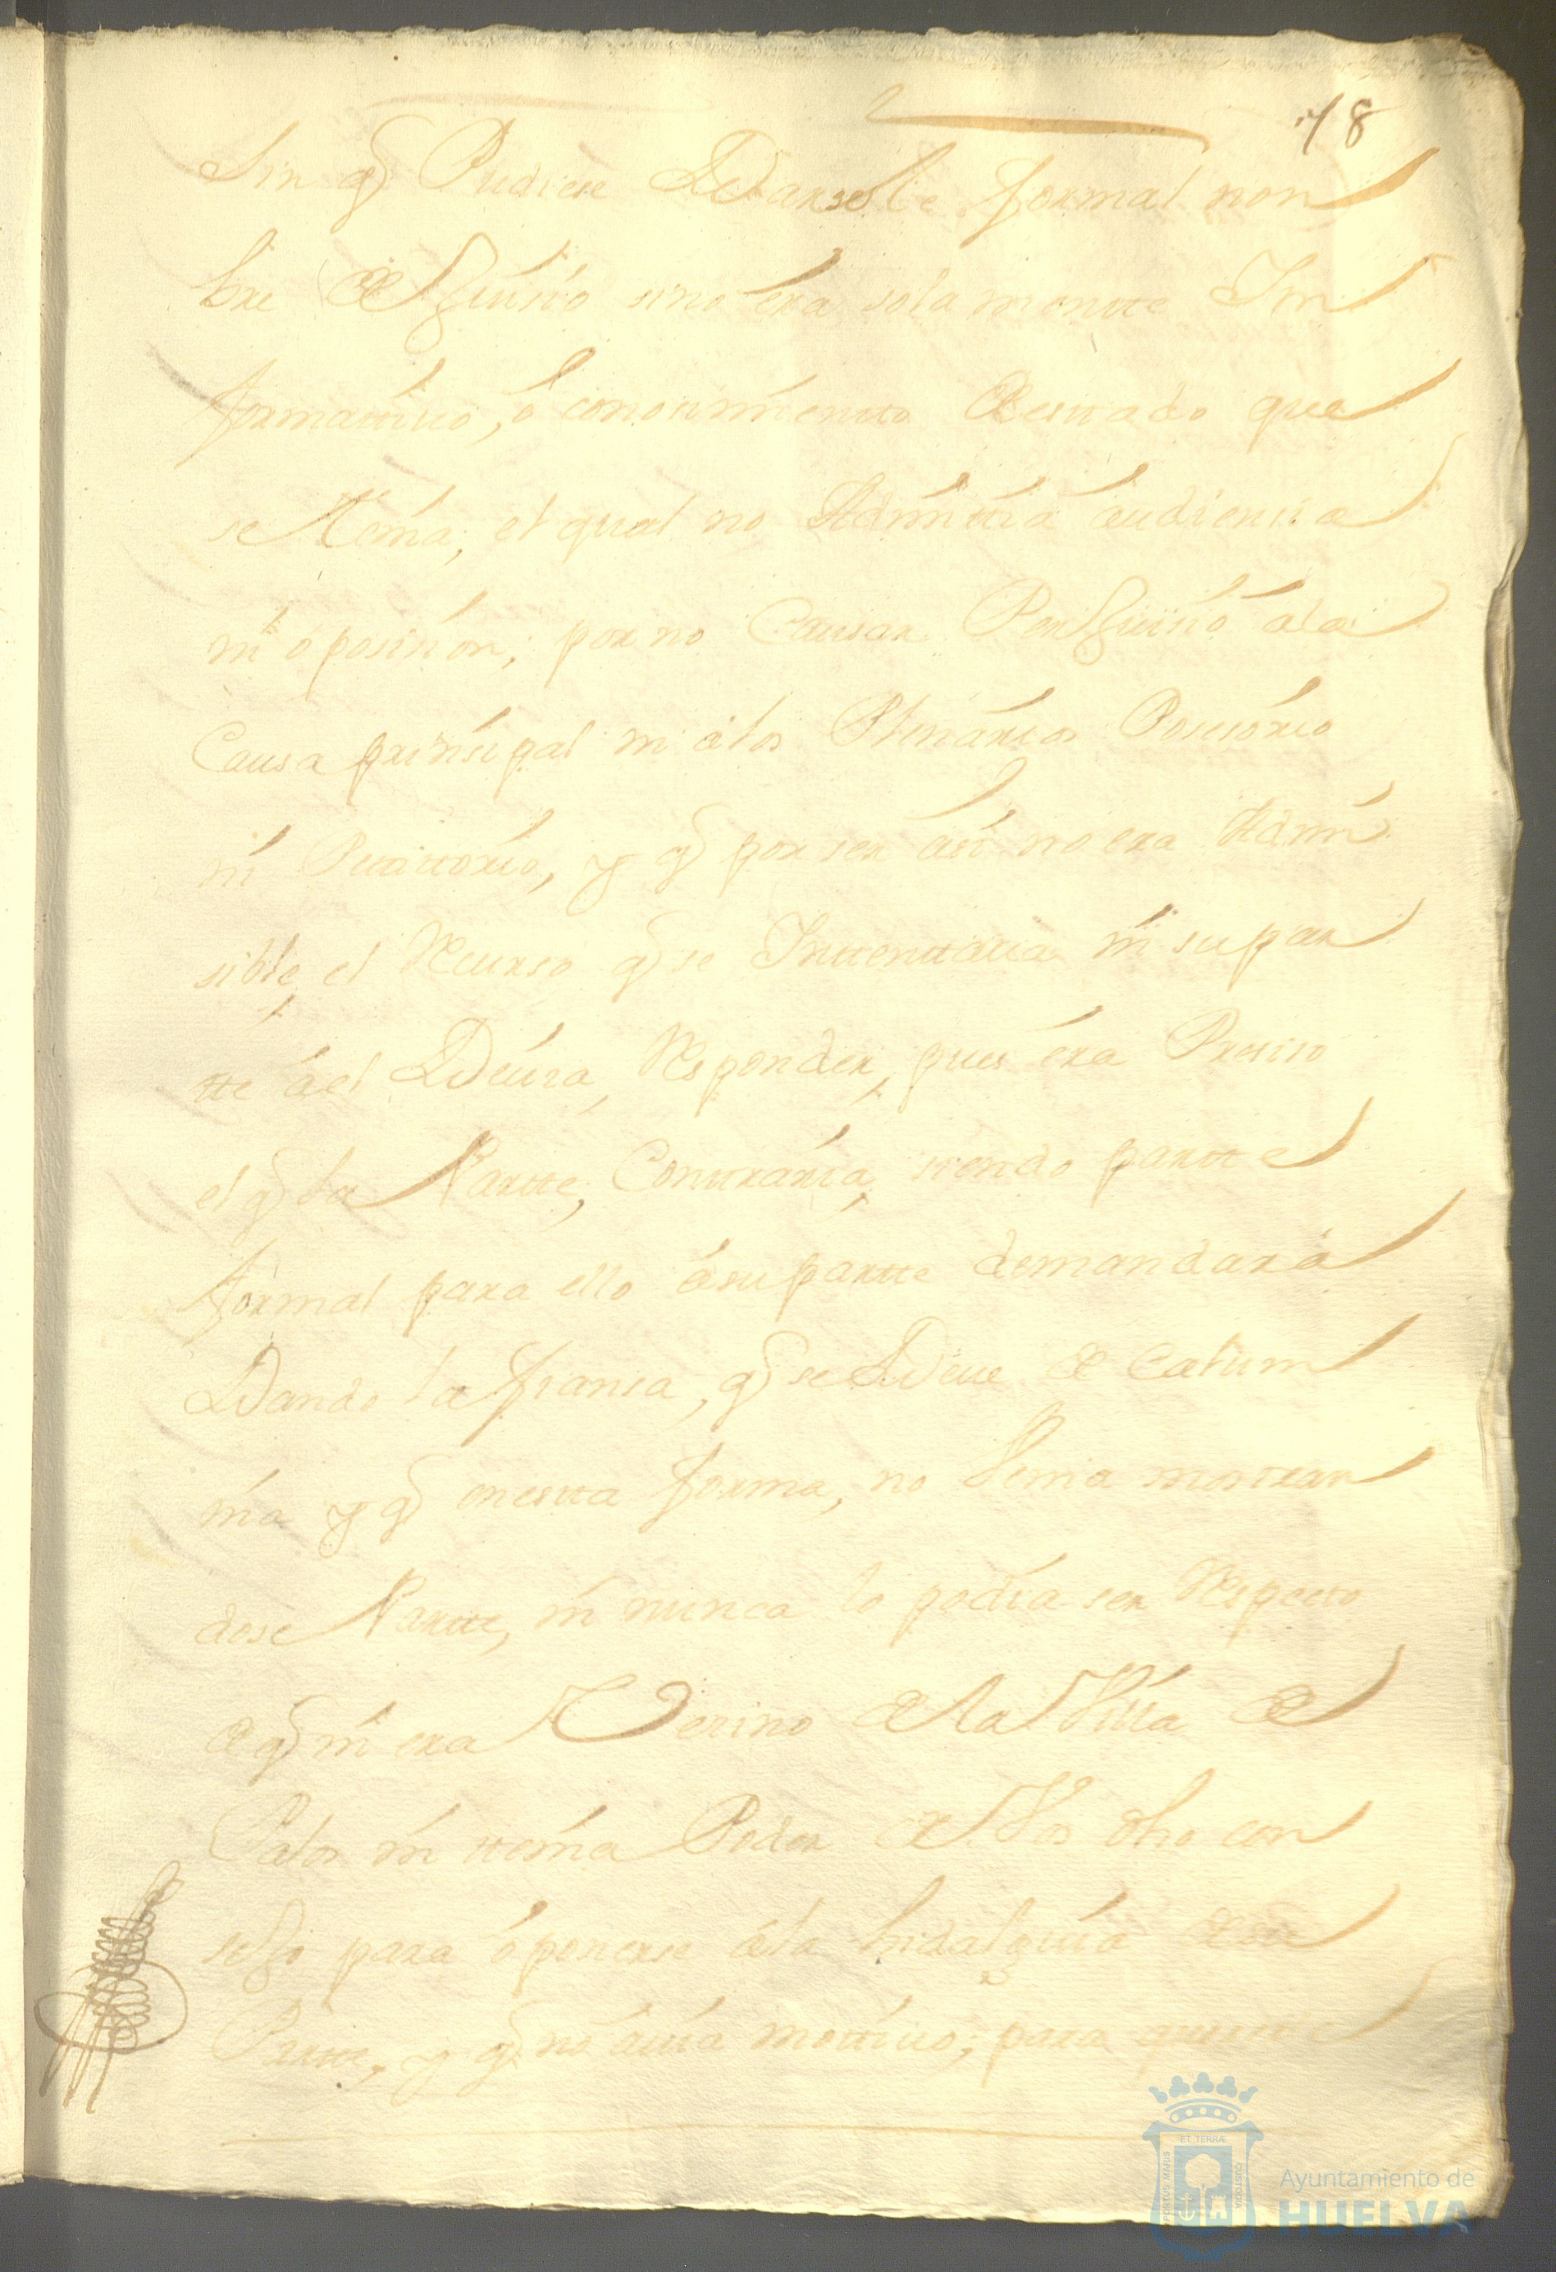 18
Sin q Pudiese Darsele formal nom
bre de Juicio sino era solamentte In
formattiuo, ó conocimientto de esttado que
se thenia, el qual no Admittia audiencia
ni oposicion; por no Causar Perjuicio ala
Causa principal ni álos Plenarios Posesorio
ni Petittorio, y q por ser asi no era Admi
sible el Recurso q se Inttenttaua ni su par
tte áel Deuia Responder, pues era Preciso
el q la Partte, Conttraria, siendo partte
formal para ello ásu partte demandara
Dando la fiansa, q se Deue de Calum
nia y q en estta forma, no Venia mostran
dose Partte, ni nunca lo podia ser Respecto
de q ni era Vecino de la Villa de
Palos ni ttenia Poder de Vos dho con
sejo para oponerse ála hidalguia de su
Partte, y q no auia mottiuo, para que
ET TERRÆ
PORTUS MARIS
CUSTODIA
Ayuntamiento de
HUELVA